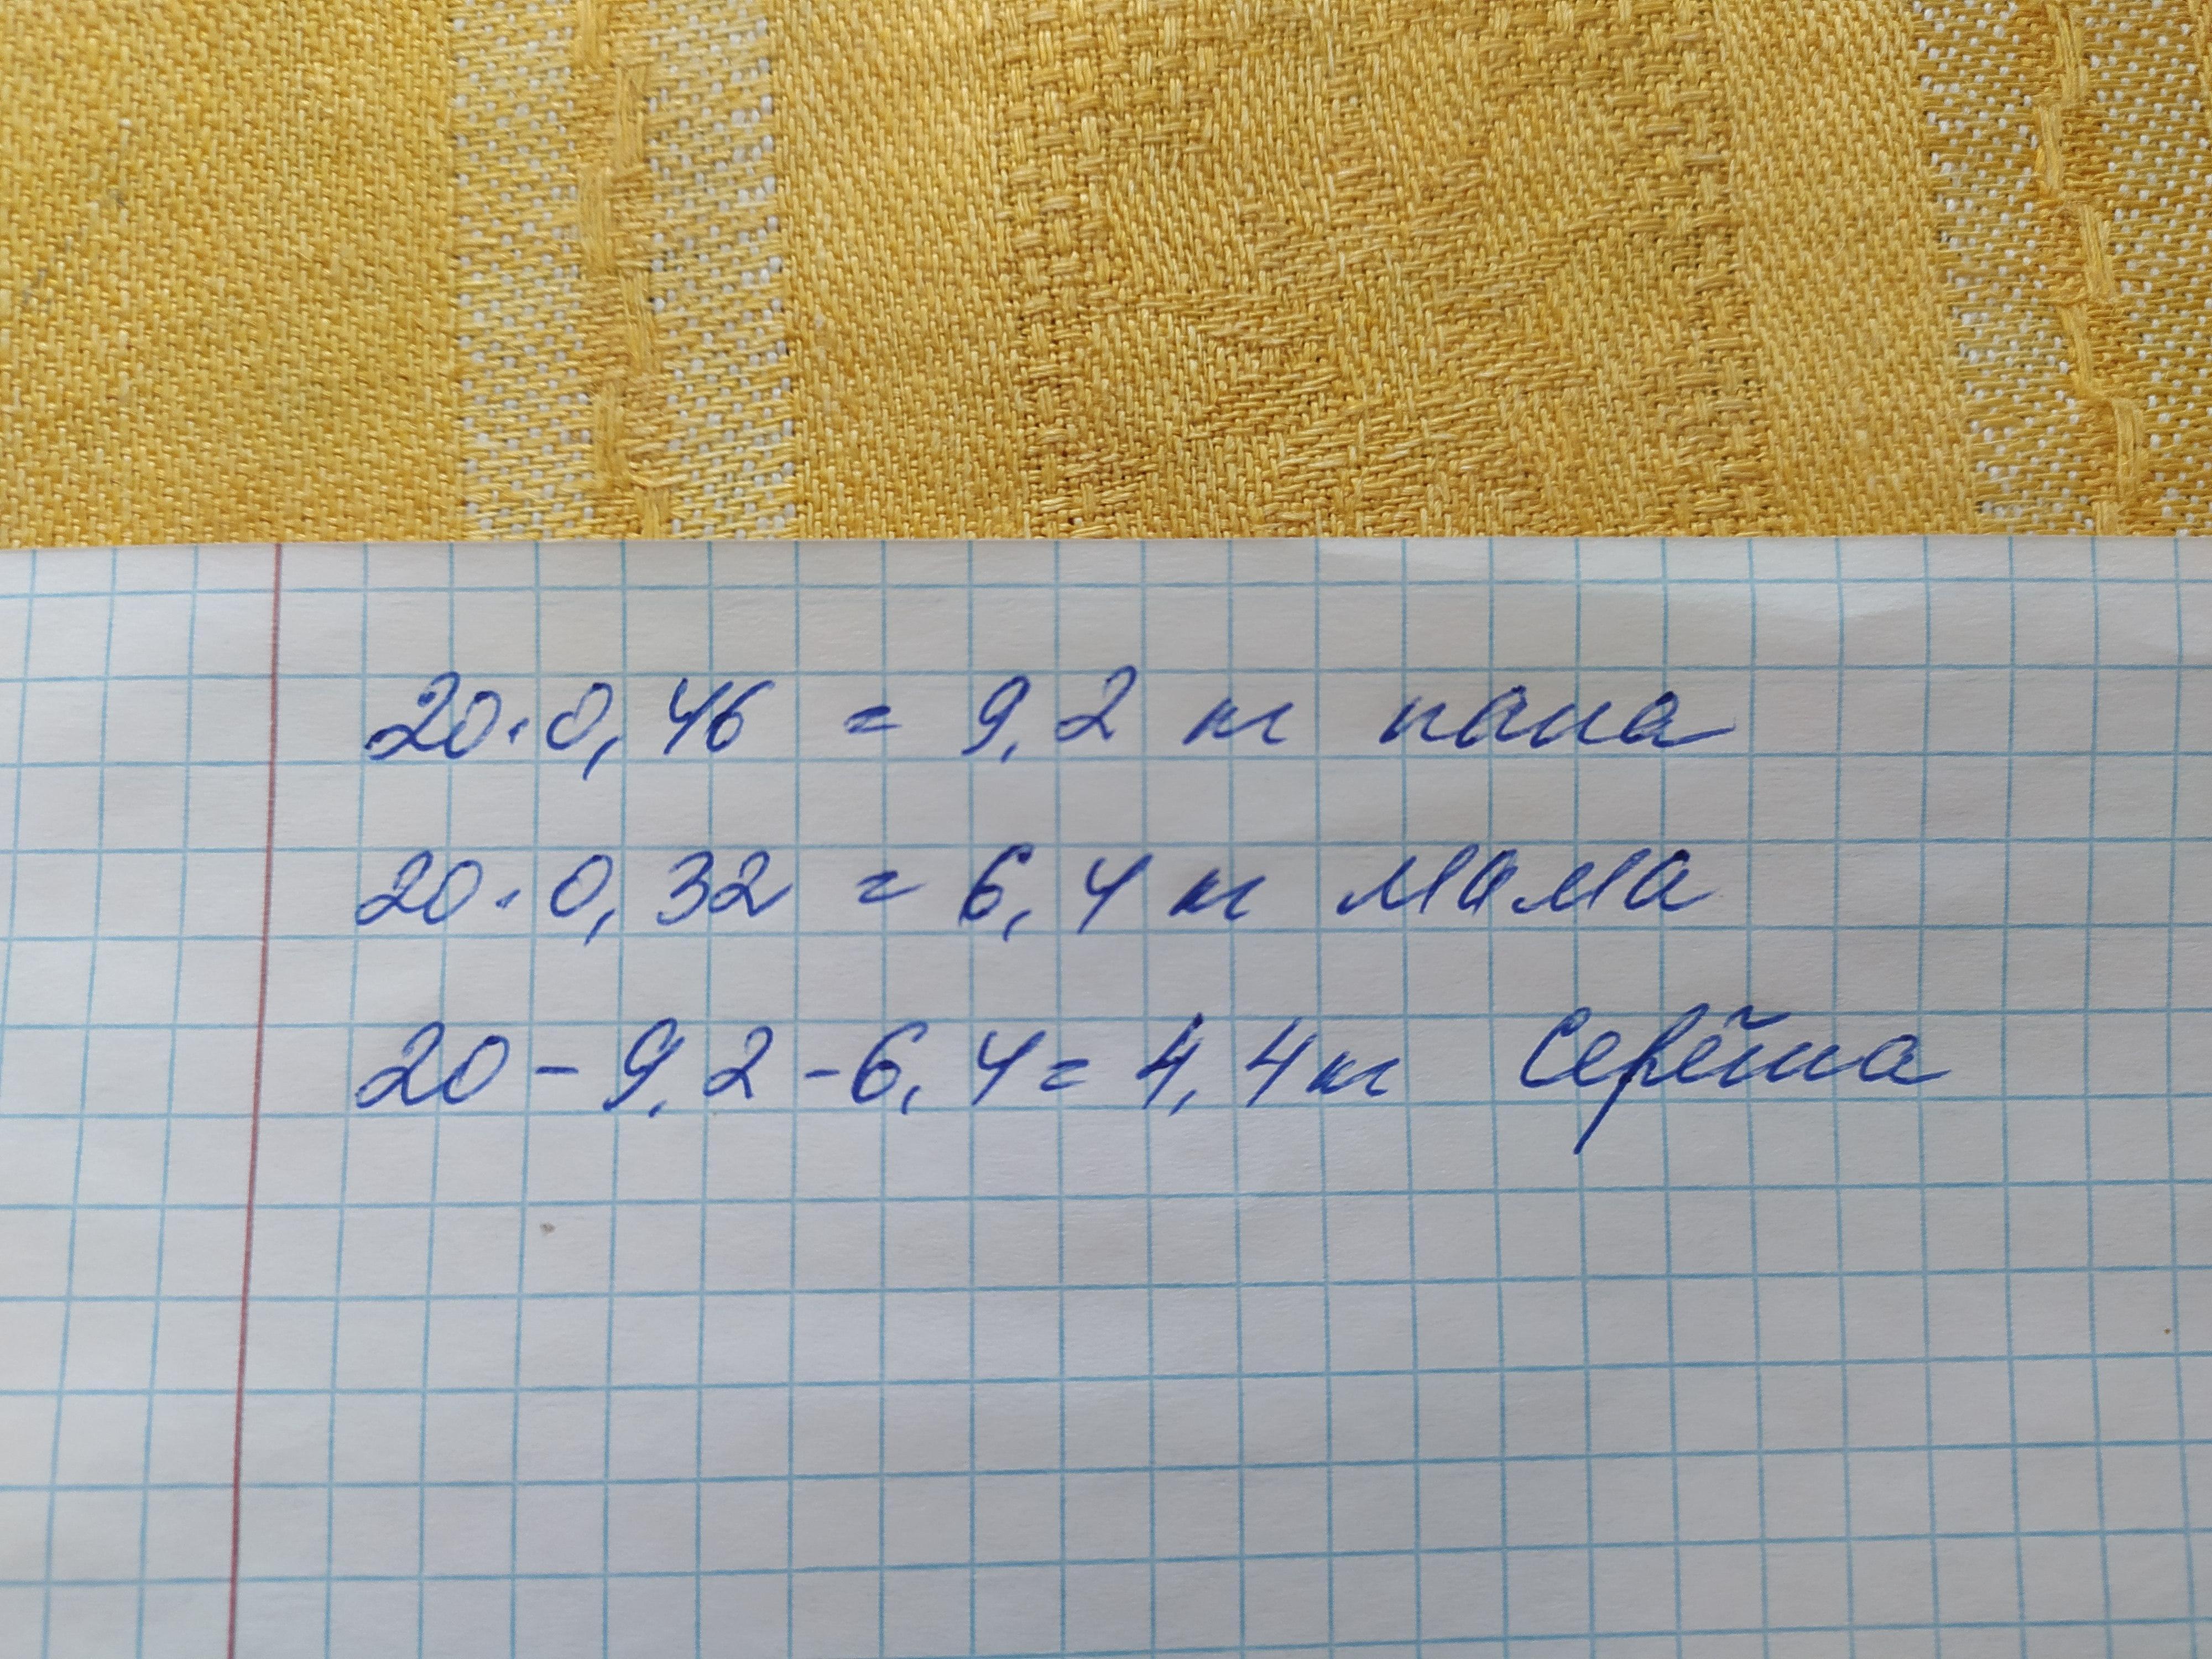 20·0,46 = 9,2 кг папа
20·0,32 = 6,4 кг мама
20-9,2-6,4=4,4кг Серёжа